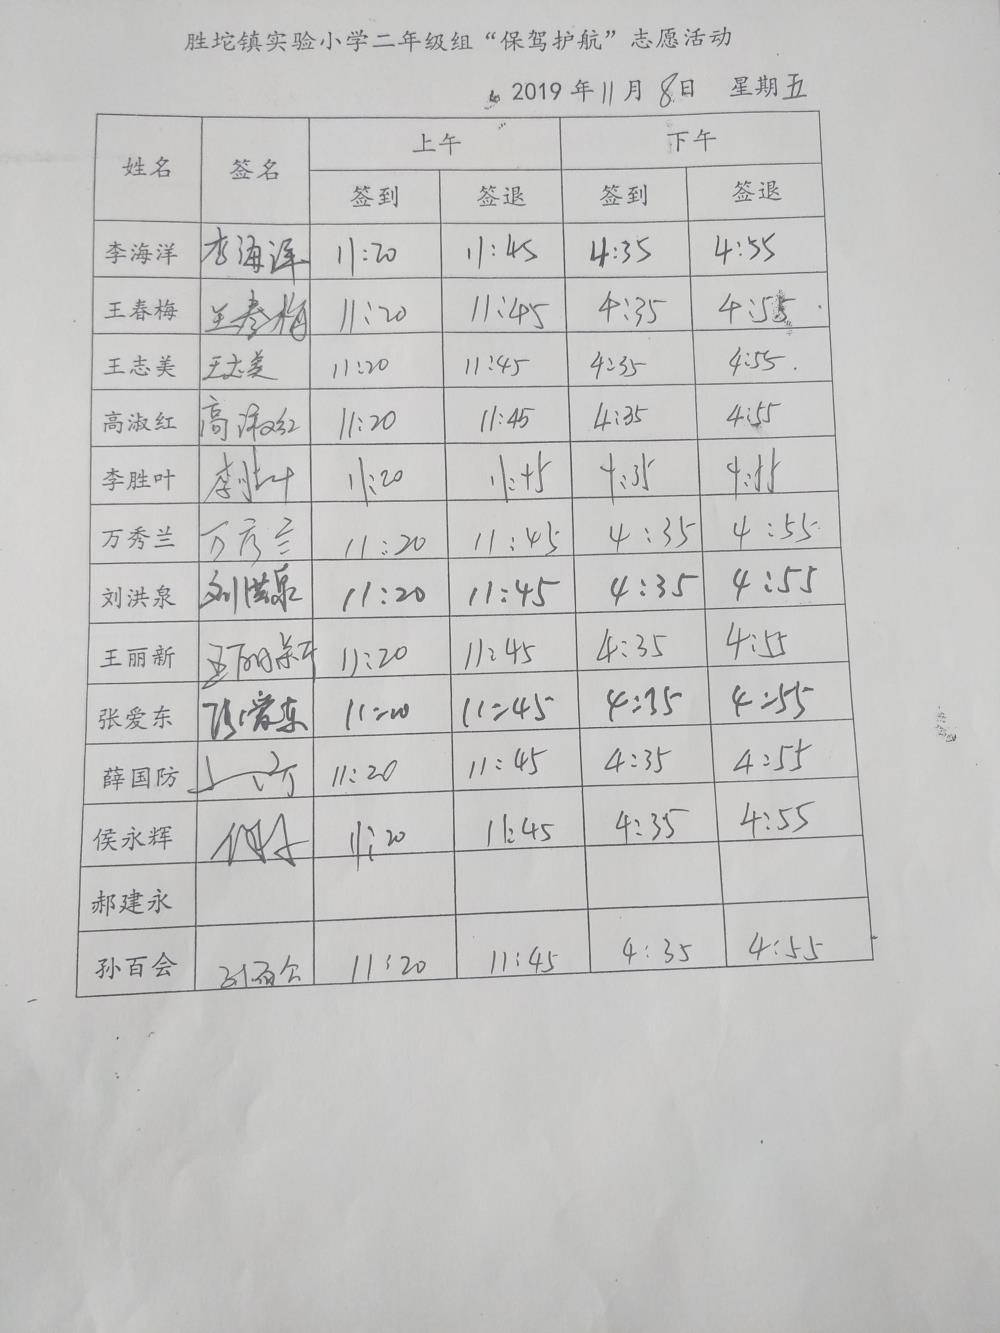 胜坨镇实验小学二年级组“保驾护航”志愿活动
2019 年 11 月 8 日 星期五
姓名 签名 上午 下午
签到 签退 签到 签退
李海洋 李海洋 11:20 11:45 4:35 4:55
王春梅 王春梅 11:20 11:45 4:35 4:55
王志美 王志美 11:20 11:45 4:35 4:55
高淑红 高淑红 11:20 11:45 4:35 4:55
李胜叶 李胜叶 11:20 11:45 4:35 4:55
万秀兰 万秀兰 11:20 11:45 4:35 4:55
刘洪泉 刘洪泉 11:20 11:45 4:35 4:55
王丽新 王丽新 11:20 11:45 4:35 4:55
张爱东 张爱东 11:20 11:45 4:35 4:55
薛国防 11:20 11:45 4:35 4:55
侯永辉 11:20 11:45 4:35 4:55
郝建永
孙百会 孙百会 11:20 11:45 4:35 4:55